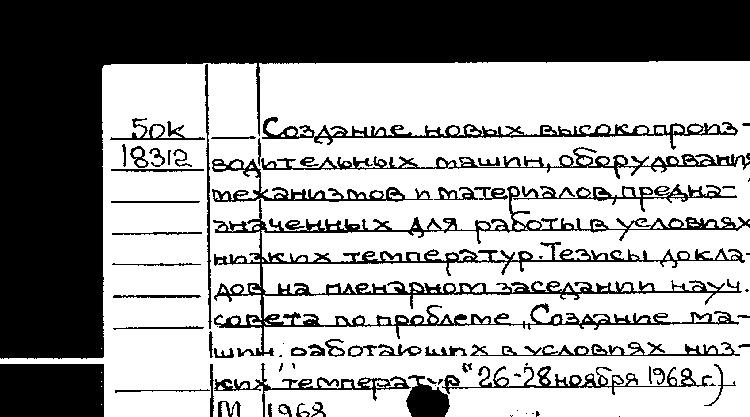 50к Создание новых высокопроиз-
18312 водительных машин, оборудования,
механизмов и материалов, предна-
значенных для работы в условиях
низких температур. Тезисы докла-
дов на пленарном заседании науч.
совета по проблеме „Создание ма-
шин, работающих в условиях низ-
ких температур“ 26-28 ноября 1968 г.).
М 1968